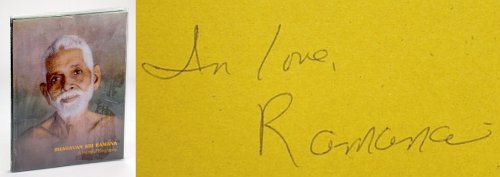 BHAGAVAN SRI RAMANA
A Pictorial Biography
In love,
Ramana